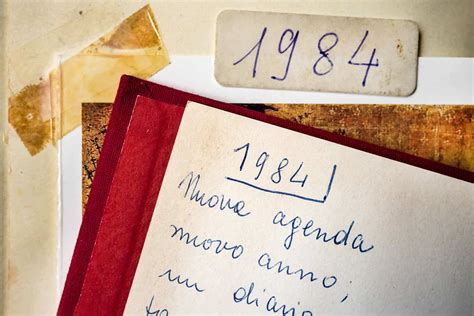 1984
1984
Nuova agenda
nuovo anno;
un diario